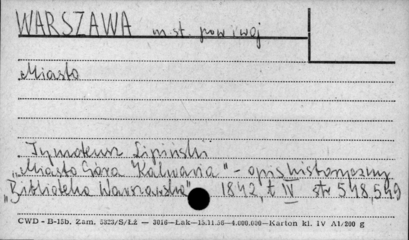 WARSZAWA m. st. pow i woj
Miasto
Tymoteusz Lipiński
„Miasto Góra Kalwaria" - opis historyczny
„Biblioteka Warszawska" 1842, t IV str 518,549
CWD - B-15b, Zam. 5823/S/ŁŻ — 3016—Lak—15.11.56—4.000.000—Karton kl. IV A1/200 g